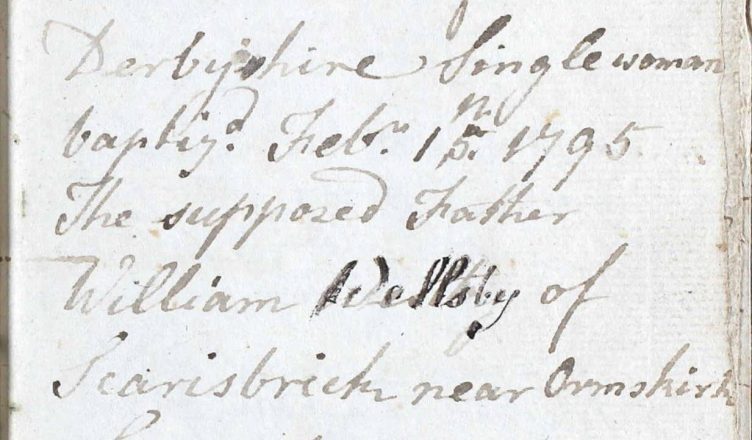 Derbyshire Single woman
baptiz.d Feb.y 15.th 1795
The supposed Father
William Wellsby of
Scarisbrick near Ormskirk